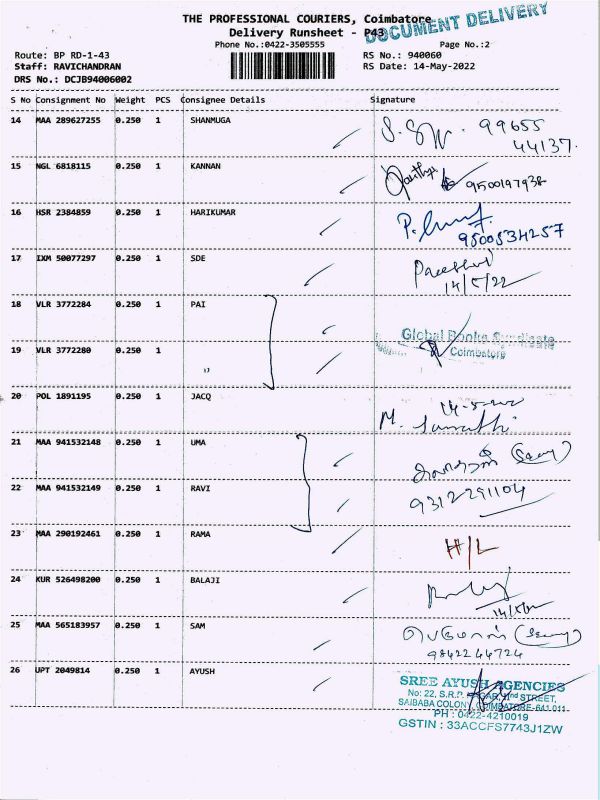 THE PROFESSIONAL COURIERS, Coimbatore
DOCUMENT DELIVERY
Delivery Runsheet - P43
Phone No.:0422-3505555
Page No.:2
Route: BP RD-1-43
RS No.: 940060
Staff: RAVICHANDRAN
RS Date: 14-May-2022
DRS No.: DCJB94006002
S No Consignment No Weight PCS Consignee Details Signature
14 MAA 289627255 0.250 1 SHANMUGA 99655
44137.
15 NGL 6818115 0.250 1 KANNAN 9500197938
16 HSR 2384859 0.250 1 HARIKUMAR
9500534257
17 IXM 50077297 0.250 1 SDE
14/5/22
18 VLR 3772284 0.250 1 PAI
Global Books Syndicate
19 VLR 3772280 0.250 1 "
Coimbatore
20 POL 1891195 0.250 1 JACQ
21 MAA 941532148 0.250 1 UMA
22 MAA 941532149 0.250 1 RAVI 9312291104
23 MAA 290192461 0.250 1 RAMA H/L
24 KUR 526498200 0.250 1 BALAJI
25 MAA 565183957 0.250 1 SAM
9842244724
26 UPT 2049814 0.250 1 AYUSH
SREE AYUSH AGENCIES
No: 22, S.R.P. STREET,
SAIBABA COLONY, COIMBATORE-641 011
PH : 0422-4210019
GSTIN : 33ACCFS7743J1ZW